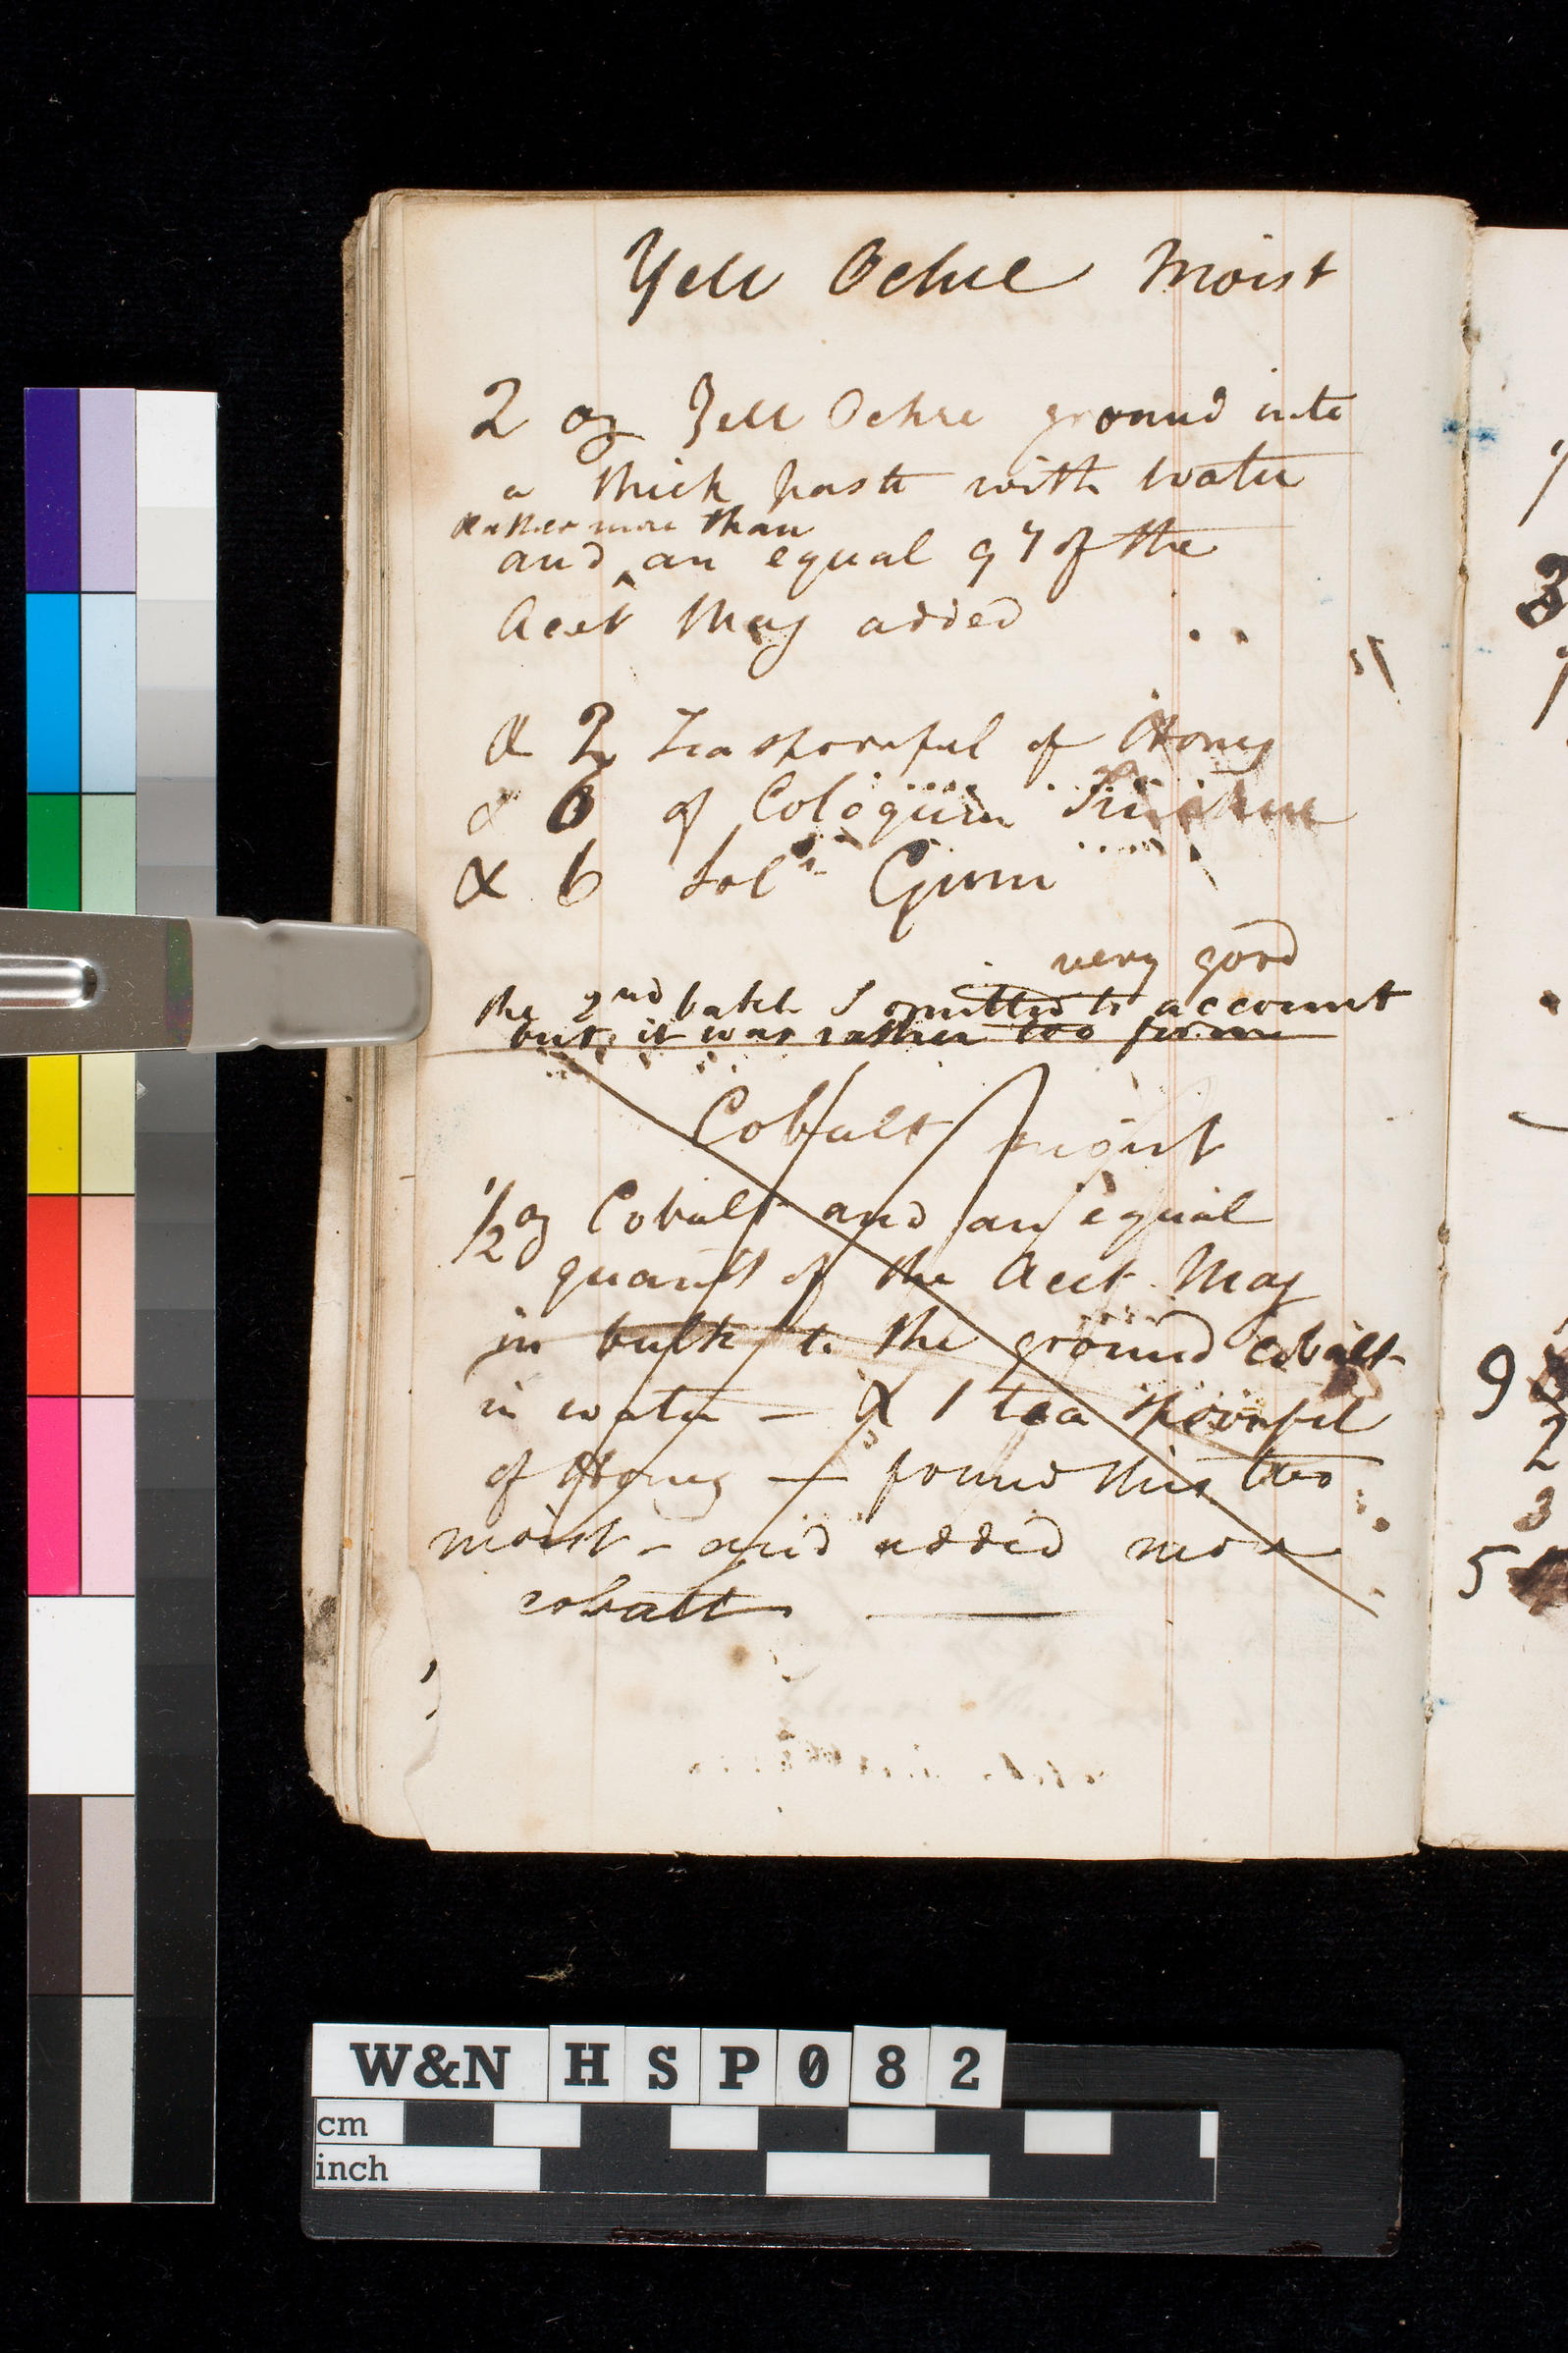 Yell Ochre Moist
2 oz Yell Ochre ground into
a thick paste with water
rather more than
and ^ an equal qy of the
Acet Mag added
& 2 Teaspoonful of Honey
& 6 of Coloquin Tincture
& 6 Soln Gum
very good
the 2nd batch I omitted to account
but it was rather too firm
Cobalt moist
1/2 oz Cobalt and an equal
quanty of the Acet Mag
in bulk to the ground cobalt
in water — & 1 tea spoonful
of Honey — found this too
moist - and added more
cobalt
9
2
3
5
3
W&N HSP082
cm
inch